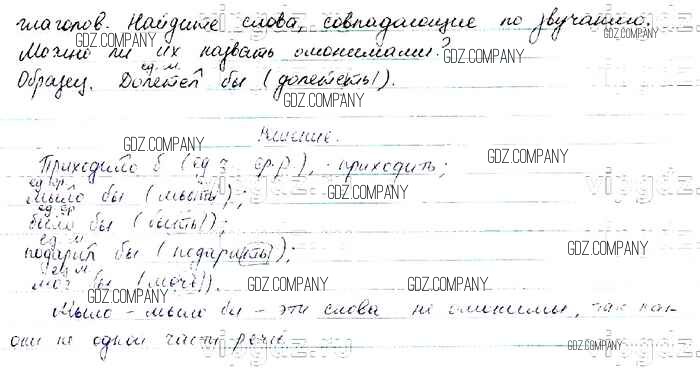 глаголов. Найдите слова, совпадающие по звучанию.
GDZ.COMPANY
GDZ.COMPANY
Можно ли их назвать омонимами?
GDZ.COMPANY
ед. м.
Образец. Долетел бы (долететь).
GDZ.COMPANY
Решение.
GDZ.COMPANY
GDZ.COMPANY
Приходило б (ед ч ср.р), - приходить;
ед ср
vipgdz.ru
GDZ.COMPANY
vipgdz.ru
мыло бы (мыть);
ед ср
было бы (быть);
ед м
GDZ.COMPANY
подарил бы (подарить);
ед м
GDZ.COMPANY
GDZ.COMPANY
мог бы (мочь).
GDZ.COMPANY
Мыло - мыло бы - эти слова не омонимы, так как
они не одной части речи.
vipgdz.ru
vipgdz.ru
GDZ.COMPANY